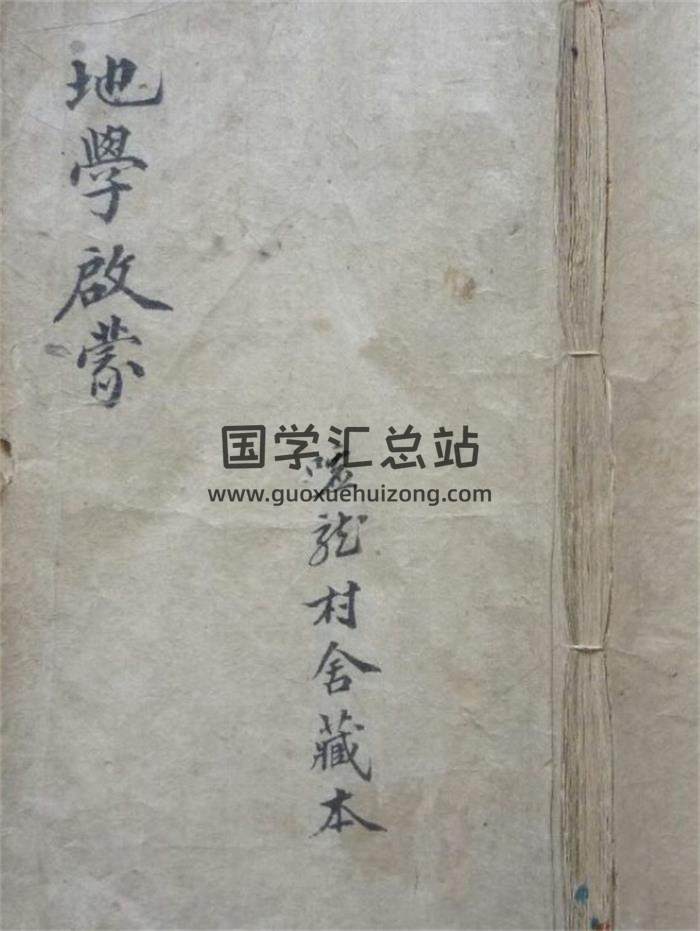 地學啟蒙
龍村舍藏本
国学汇总站
www.guoxuehuizong.com